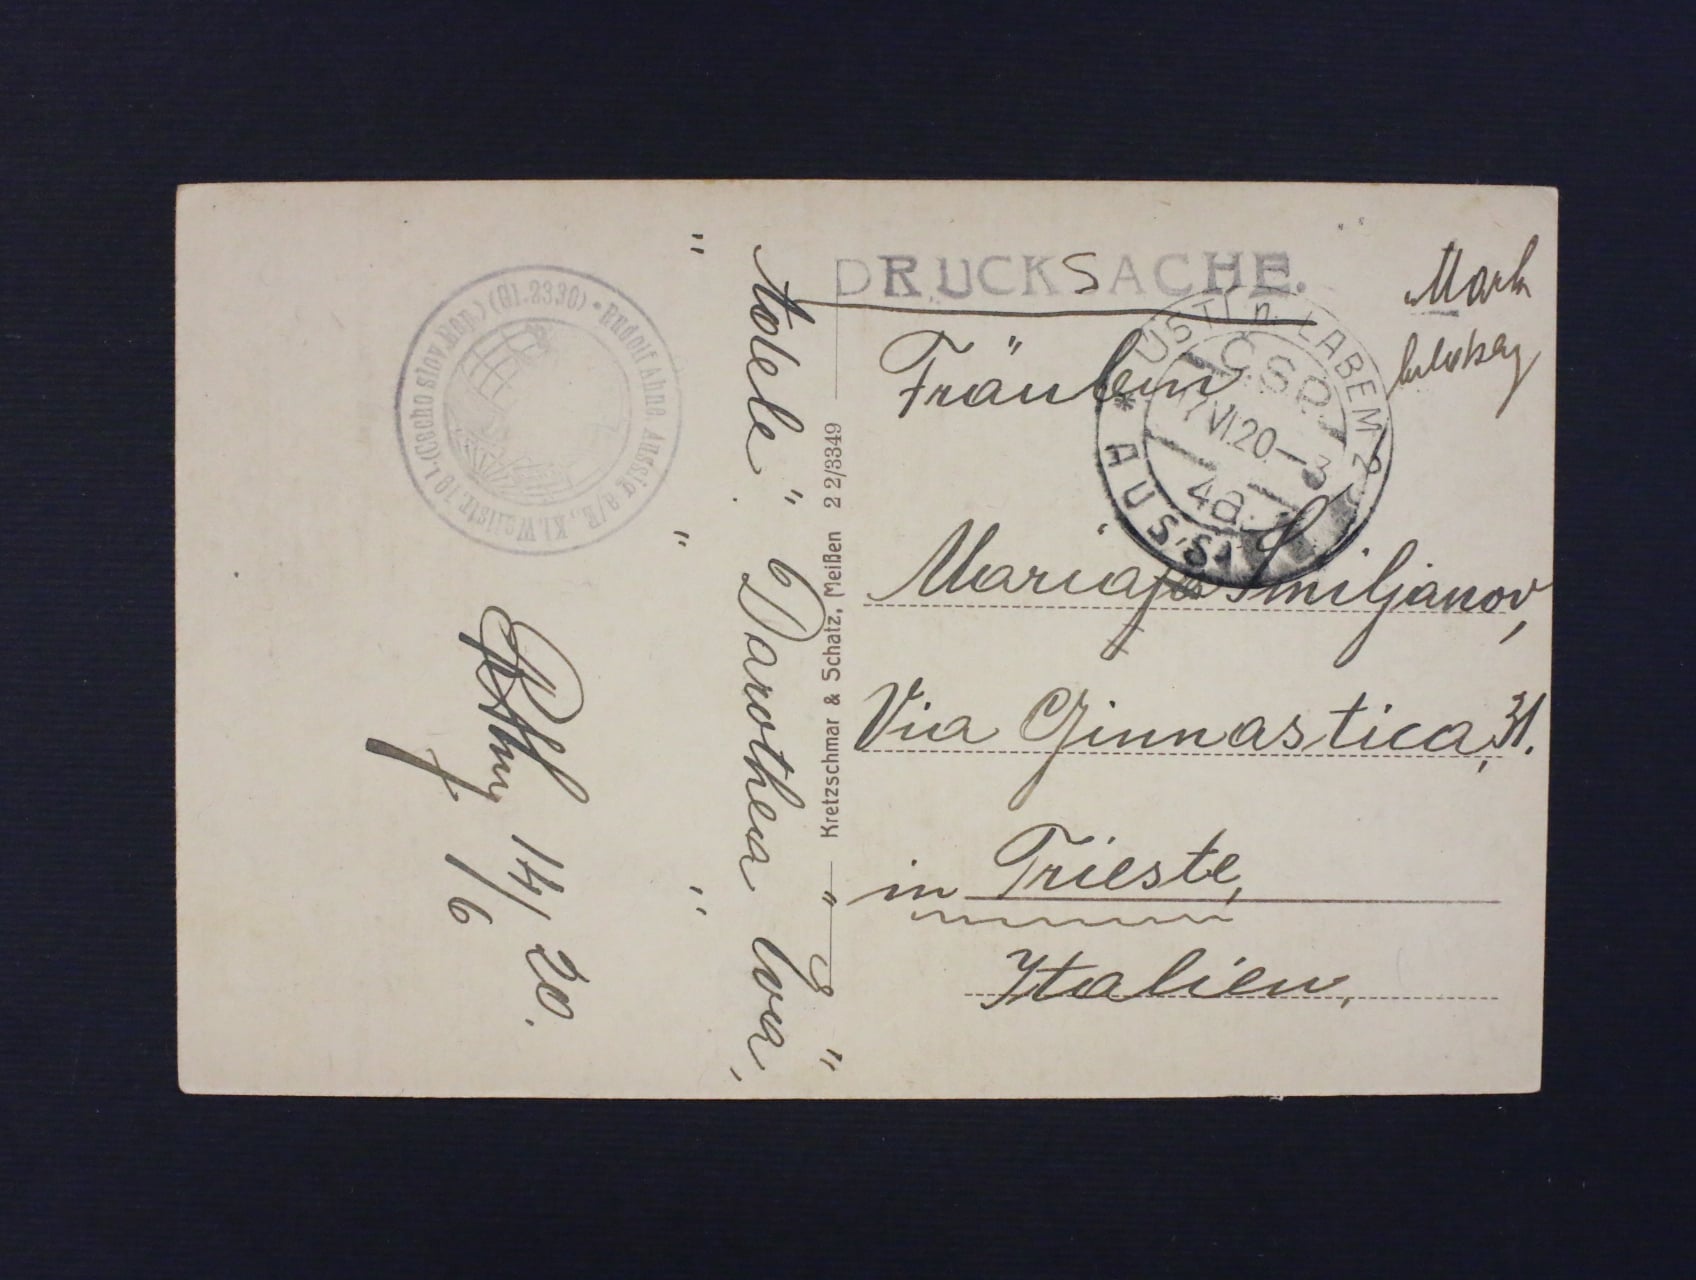 DRUCKSACHE.
Fräulein
Marija Smiljanov,
Via Ginnastica, 31.
in Trieste,
Italien,
Mark
USTI n. LABEM 2
* AUSSIG
Č.S.P.
17 VI.20–3
4a.
Kretzschmar & Schatz, Meißen 2 2/3349
Rudolf Ahne, Aussig a/E., Kl. Wallstr. 10 I. (Čechoslov. Rep.) (Gl. 2330) •
" Dorothea "
14/6 20.